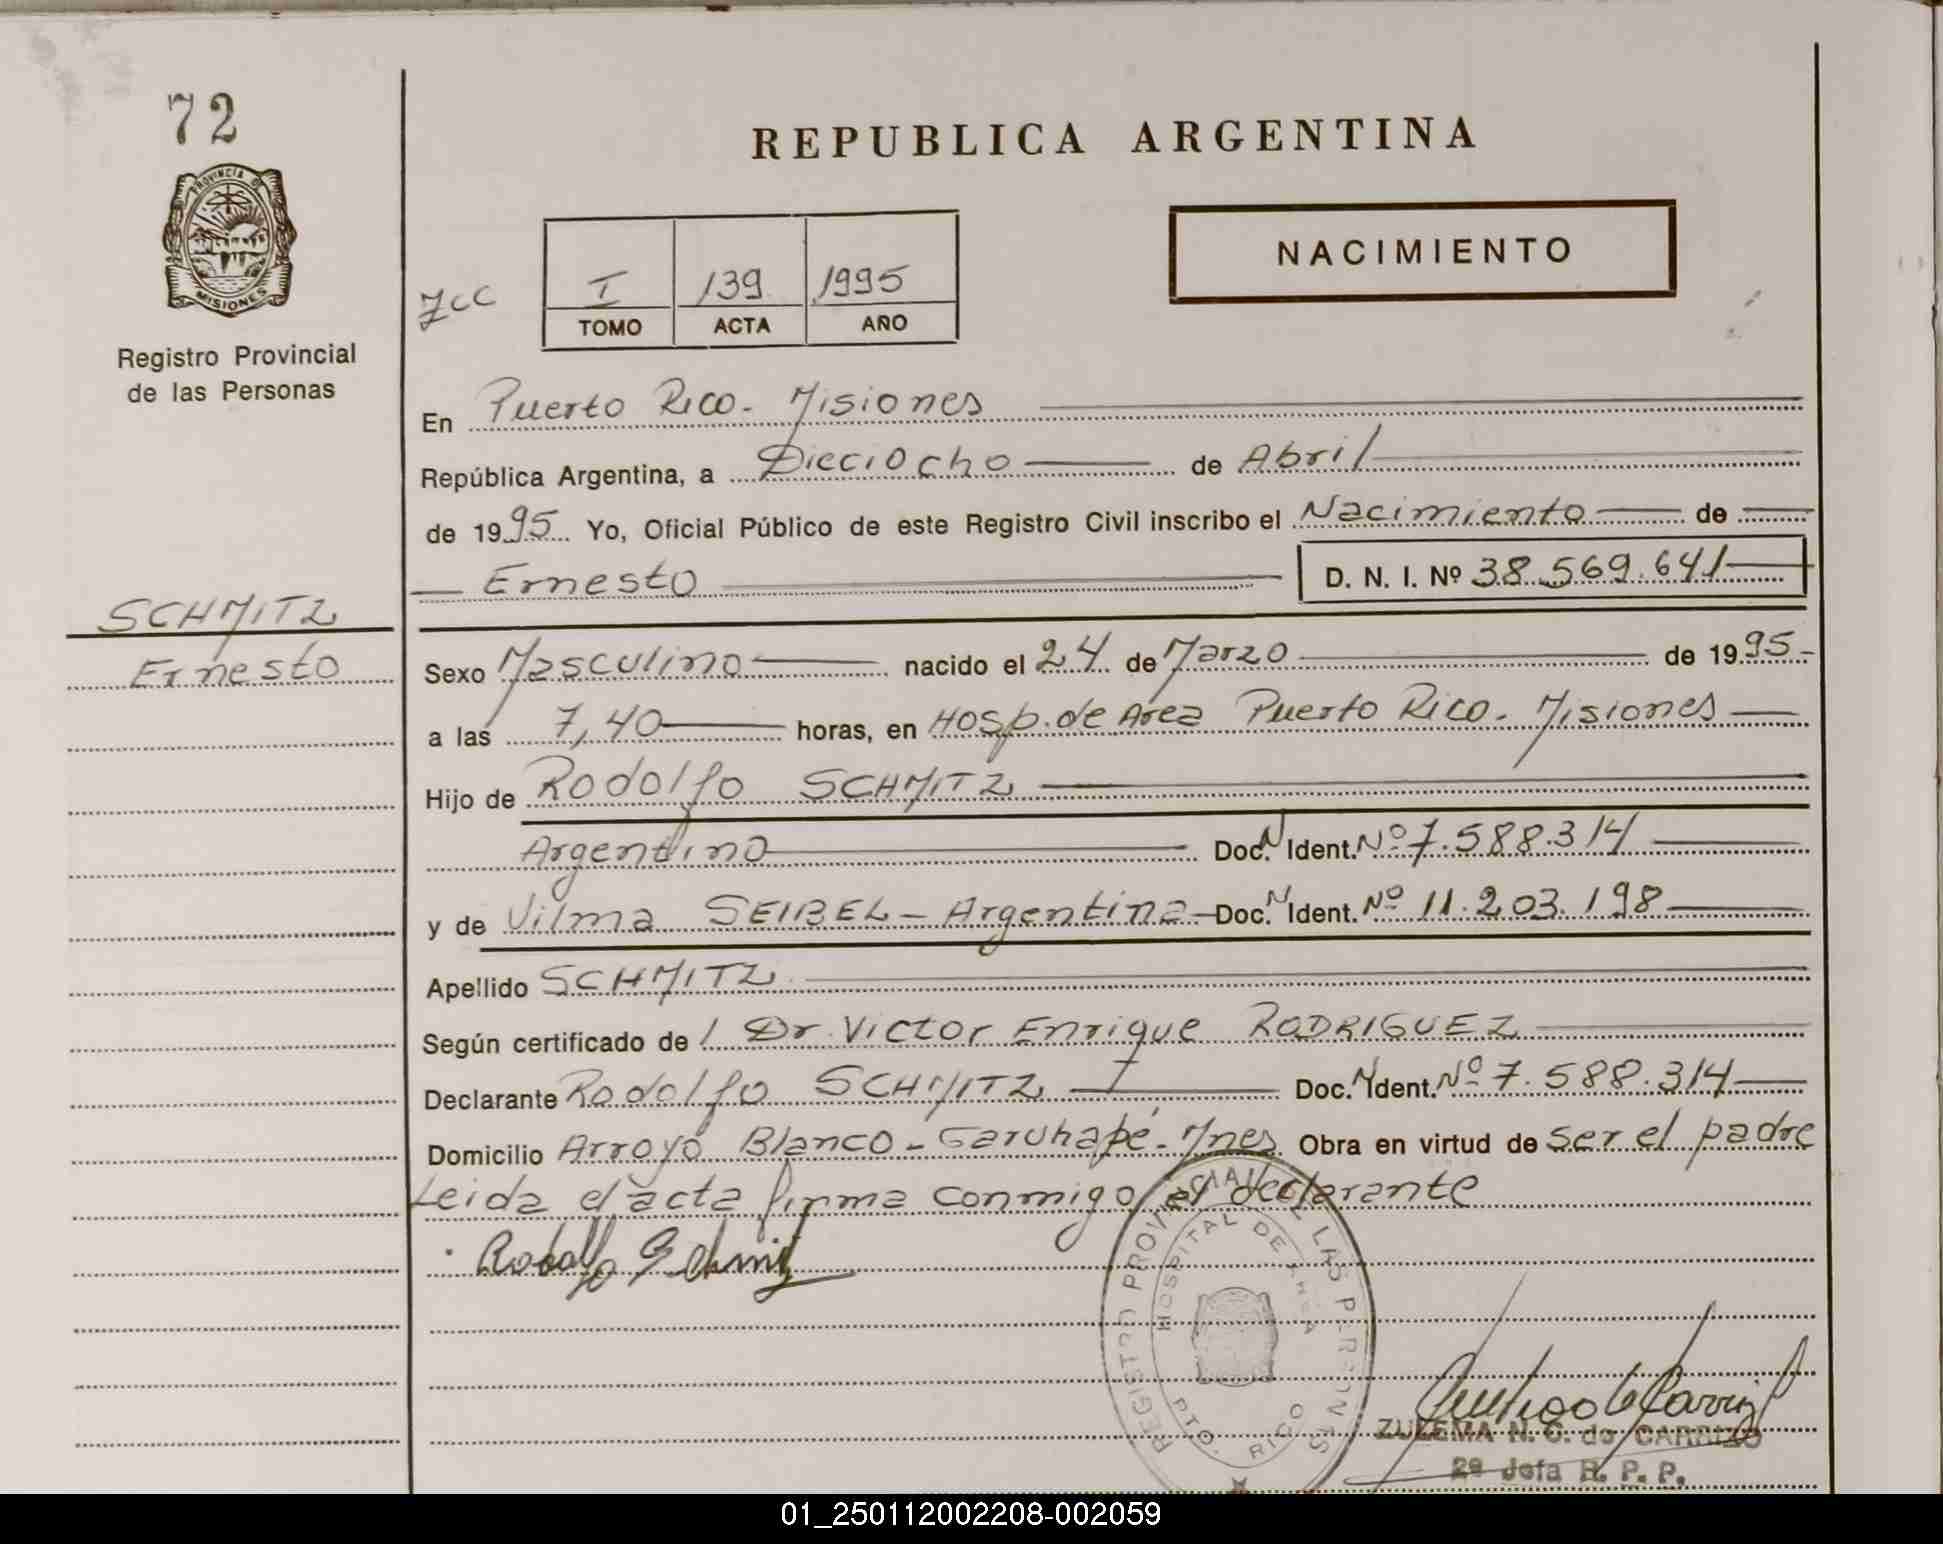 72
PROVINCIA DE
MISIONES
Registro Provincial
de las Personas
SCHMITZ
Ernesto
REPUBLICA ARGENTINA
NACIMIENTO
I 139 1995
TOMO ACTA AÑO
En Puerto Rico - Misiones
República Argentina, a Dieciocho de Abril
de 1995 Yo, Oficial Público de este Registro Civil inscribo el Nacimiento de
Ernesto D. N. I. Nº 38.569.641
Sexo Masculino nacido el 24 de Marzo de 1995
a las 7,40 horas, en Hosp. de Area Puerto Rico - Misiones
Hijo de Rodolfo SCHMITZ
Argentino Doc. N. Ident. Nº 7.588.314
y de Vilma SEIBEL - Argentina - Doc. N. Ident. Nº 11.203.198
Apellido SCHMITZ
Según certificado de l Dr. Victor Enrique RODRIGUEZ
Declarante Rodolfo SCHMITZ Doc. N. Ident. Nº 7.588.314
Domicilio Arroyo Blanco - Garuhapé - Mnes Obra en virtud de ser el padre
Leida el acta firma conmigo el declarante
Rodolfo Schmitz
REGISTRO PROVINCIAL DE LAS PERSONAS
HOSPITAL DE AREA
PTO. RICO
ZULEMA N. C. de CARRIZO
2ª Jefa R. P. P.
01_250112002208-002059